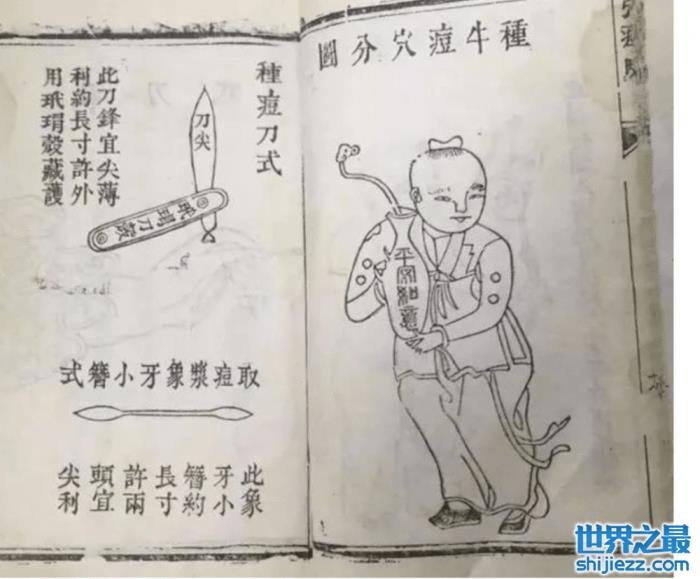 種牛痘穴分圖
平安如意
種痘刀式
刀尖
玳瑁刀殼
此刀鋒宜尖薄
利約長寸許外
用玳瑁殼藏護
取痘漿象牙小簪式
此象
牙小
簪約
長寸
許兩
頭宜
尖利
世界之最
shijiezz.com